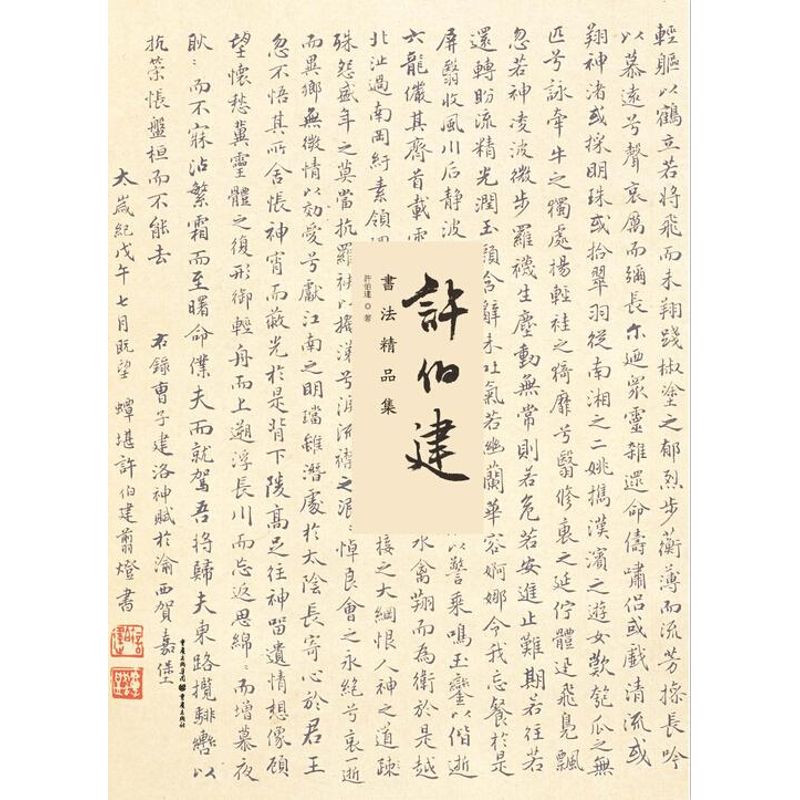 輕軀以鶴立若將飛而未翔踐椒塗之郁烈步蘅薄而流芳長吟
以慕遠兮聲哀厲而彌長尔迺眾靈雜遝命儔嘯侶或戲清流或
翔神渚或採明珠或拾翠羽從南湘之二姚攜漢濱之遊女歎匏瓜之無
匹兮詠牽牛之獨處揚輕袿之猗靡兮翳修之延佇體迅飛鳧飄
忽若神凌波微步羅襪生塵動無常則若危若安進止難期若往若
還轉盼流精光潤玉顏含辭未吐氣若幽蘭華容婀娜令我忘餐於是
屏翳收風川后静波
以警乘鳴玉鑾以偕逝
六龍儼其齊首載雲
水禽翔而為衛於是越
北沚過南岡紆素領
接之大綱恨人神之道疎
殊怨盛年之莫當抗羅袂以掩涕兮淚流襟之浪〻悼良會之永絕兮哀一逝
而異鄉無微情以効愛兮獻江南之明璫雖潛處於太陰長寄心於君王
忽不悟其所舍悵神宵而蔽光於是背下陵高足往神留遺情想像顧
望懷愁冀靈體之復形御輕舟而上遡浮長川而忘返思綿〻而增慕夜
耿〻而不寐沾繁霜而至曙命僕夫而就駕吾將歸夫東路攬騑轡以
抗策悵盤桓而不能去
右錄曹子建洛神賦於渝西賀嘉堡
太歲紀戊午七月既望 蟫堪許伯建翦燈書
許伯建
書法精品集
許伯建◎著
重慶出版集團
重慶出版社